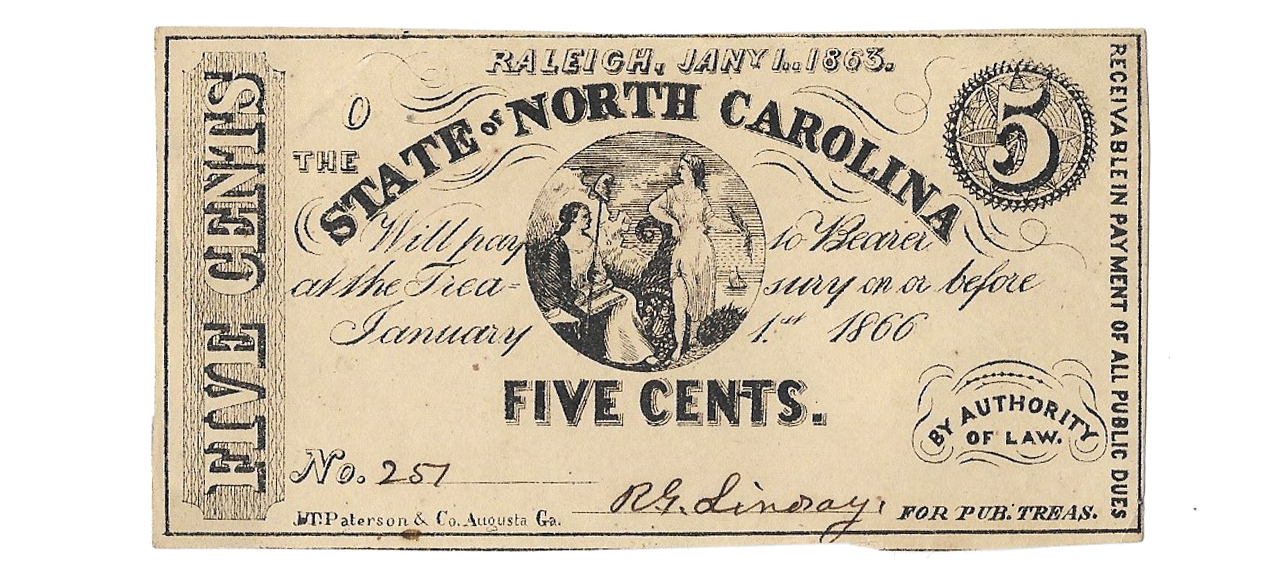 RALEIGH, JANY 1..1863.
O
THE
STATE of NORTH CAROLINA
5
Will pay to Bearer
at the Trea= sury on or before
January 1.st 1866
FIVE CENTS.
BY AUTHORITY
OF LAW.
No. 251
R.G. Lindsay.
FOR PUB. TREAS.
J.T. Paterson & Co. Augusta Ga.
FIVE CENTS
RECEIVABLE IN PAYMENT OF ALL PUBLIC DUES